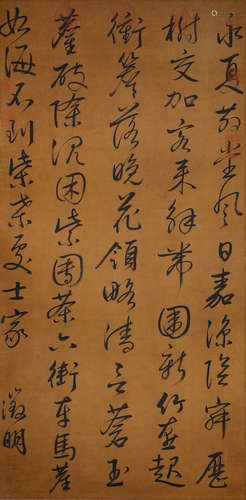 永夏茆堂風日嘉涼陰寂歷
樹交加客來解帶圍新竹燕起
衝簾落晚花領略清言蒼玉
麈破除沉困紫團茶六街車馬塵
如海不到柴桑處士家 徵明